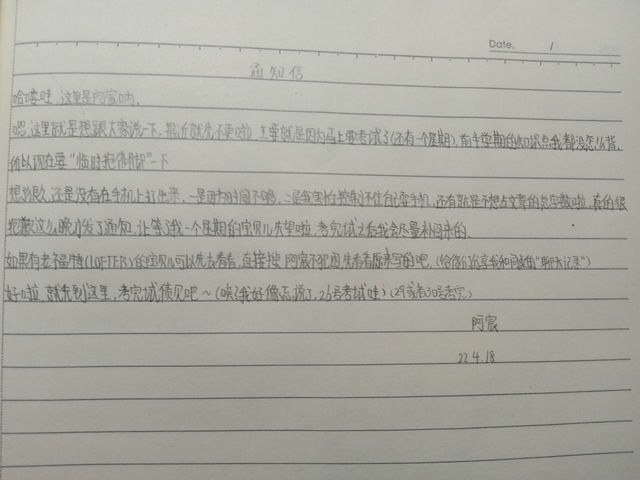 Date. /
通知信
哈喽哇,这里是阿宸呐,
嗯,这里就是想跟大家说一下,最近就先不更啦,主要就是因为马上要考试了(还有一个星期),前半学期的知识点我都没怎么背,
所以现在要“临时抱佛脚”一下
想很久,还是没有在手机上打出来,一是因为时间不够,二是我害怕控制不住自己玩手机,还有就是不想占文章的总字数啦,真的很
抱歉这么晚才发了通知,让等了我一个星期的宝贝儿失望啦,考完试之后我会尽量补回来的,
如果有老福特(LOFTER)的宝贝儿可以先去看看,直接搜 阿宸不犯困 先看看原来写的吧,(给你们分享我和闺蜜“聊天记录”)
好啦,就先到这里,考完试债见吧~(唉?我好像忘说了,26号考试哇)(29或者30号考完)
阿宸
22.4.18